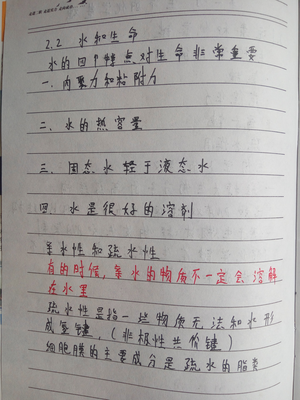 2.2 水和生命
水的四个特点对生命非常重要
一、内聚力和粘附力
二、水的热容量
三、固态水轻于液态水
四、水是很好的溶剂
亲水性和疏水性
有的时候，亲水的物质不一定会溶解
在水里
疏水性是指一些物质无法和水形
成氢键，（非极性共价键）
细胞膜的主要成分是疏水的脂类